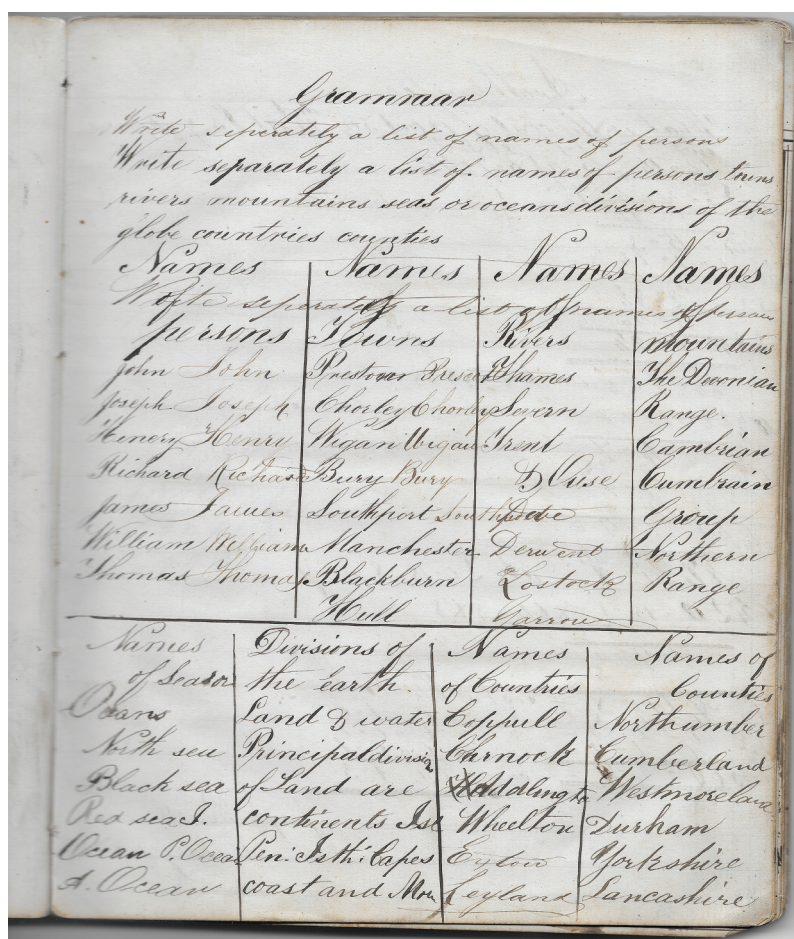 Grammar
Write seperately a list of names of persons
Write separately a list of names of persons towns
rivers mountains seas or oceans divisions of the
globe countries counties
Names Names Names Names
Write seperately a list of names of person
of persons Towns Rivers mountains
John John Preston Prescot Thames The Devonian
Joseph Joseph Chorley Chorley Severn Range.
Henery Henry Wigan Wigan Trent Cambrian
Richard Richard Bury Bury & Ouse Cumbrain
James James Southport Southport Dee Group
William William Manchester Derwent Northern
Thomas Thomas Blackburn Lostock Range
Hull Yarrow
Names Divisions of Names Names of
of Seas or the earth. of Countries Counties
Oceans Land & water Coppull Northumber
North sea Principal division Charnock Cumberland
Black sea of Land are Addlington Westmoreland
Red sea I. continents Isl Wheelton Durham
Ocean P. Ocean Pen: Isth: Capes Yorkshire
A. Ocean coast and Mou Leyland Lancashire